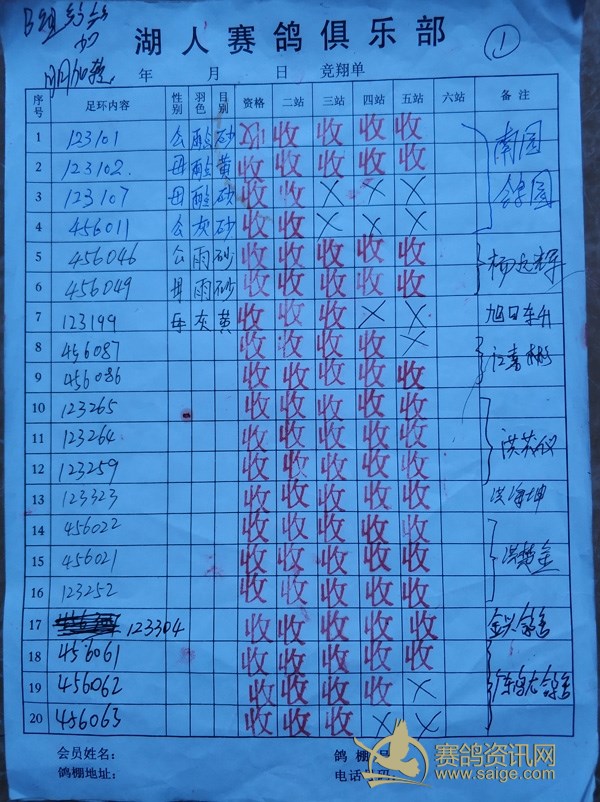 湖人赛鸽俱乐部
①
年 月 日 竞翔单
序号 足环内容 性别 羽色 目别 资格 二站 三站 四站 五站 六站 备注
1 123101 公 酸 砂 收 收 收 收 收 南园
2 123102. 母 酸 黄 收 收 收 收 收 鸽园
3 123107 母 酸 砂 收 收 × × ×
4 456011 公 灰 砂 收 收 × × ×
5 456046 公 雨 砂 收 收 收 收 收
6 456049 母 雨 砂 收 收 收 收 收
7 123199 母 灰 黄 收 收 收 × × 旭日东升
8 456087 收 收 收 收 ×
9 456086 收 收 收 收 收
10 123265 收 收 收 收 收
11 123264 收 收 收 收 收
12 123259 收 收 收 收 收
13 123323 收 收 收 收 收 洪海坤
14 456022 收 收 收 收 收
15 456021 收 收 收 收 收
16 123252 收 收 收 收 收
17 123304 收 收 收 收 收
18 456061 收 收 收 收 收
19 456062 收 收 收 收 ×
20 456063 收 收 收 × ×
会员姓名： 鸽棚
鸽棚地址： 电话号码：
赛鸽资讯网
www.saige.com